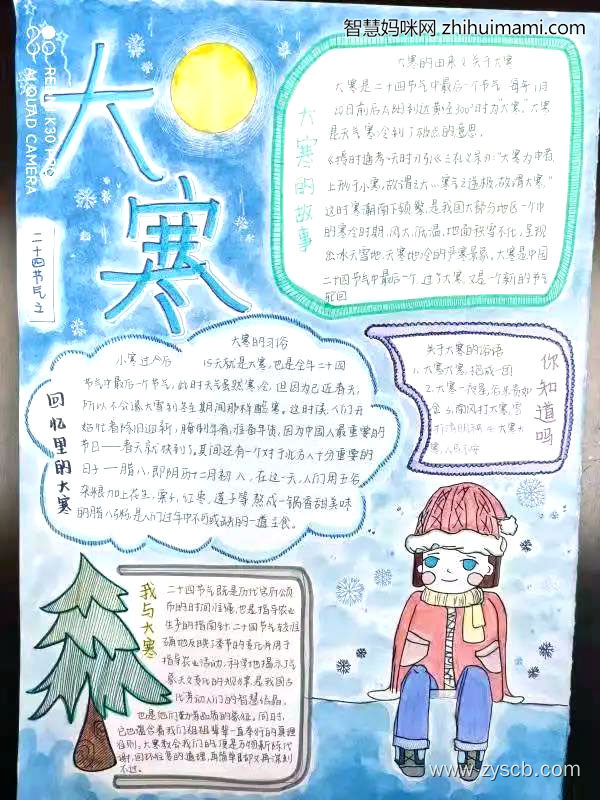 智慧妈咪网 zhihuimami.com
REDMI K30 PRO
AI QUAD CAMERA
大寒
二十四节气之
大寒的故事
大寒的由来 关于大寒
大寒是二十四节气中最后一个节气 每年1月
20日前后太阳到达黄经300°时为"大寒"。大寒
是天气寒冷到了极点的意思。
《授时通考·天时》引《三礼义宗》:"大寒为中者
上形于小寒,故谓之大…寒气之逆极,故谓大寒。"
这时寒潮南下频繁,是我国大部分地区一年中
的寒冷时期,风大,低温,地面积雪不化,呈现
出冰天雪地,天寒地冻的严寒景象。大寒是中国
二十四节气中最后一个,过了大寒,又是一个新的节气
轮回
回忆里的大寒
大寒的习俗
小寒过后 15天就是大寒,也是全年二十四
节气中最后一个节气,此时天气虽然寒冷,但因为已近春天,
所以不会像大雪到冬至期间那样酷寒。这时候,人们开
始忙着除旧迎新,腌制年肴,准备年货,因为中国人最重要的
节日——春天就快到了。其间还有一个对于北方人十分重要的
日子——腊八,即阴历十二月初八。在这一天,人们用五谷
杂粮加上花生,栗子,红枣,莲子等熬成一锅香甜美味
的腊八粥,是人们过年中不可或缺的一道主食。
你知道吗
关于大寒的俗语
1、大寒大寒,抱成一团
2、大寒一夜星,谷米贵如
金 3、南风打大寒,雪
打清明秧 4 大寒大
寒,人马不安
我与大寒
二十四节气既是历代官府颁
布的时间准绳,也是指导农业
生产的指南针,二十四节气较准
确地反映了季节的变化并用于
指导农业活动,科学地揭示了气
象天文变化的规律,是我国古
代劳动人们的智慧结晶,
也是他们勤劳品质的象征。同时,
它也蕴含着我们祖祖辈辈一直奉行的真理
准则。大寒教会我们的便是万物新陈代
谢,回环往复的道理,再简单却又再深刻
不过。
www.zyscb.com